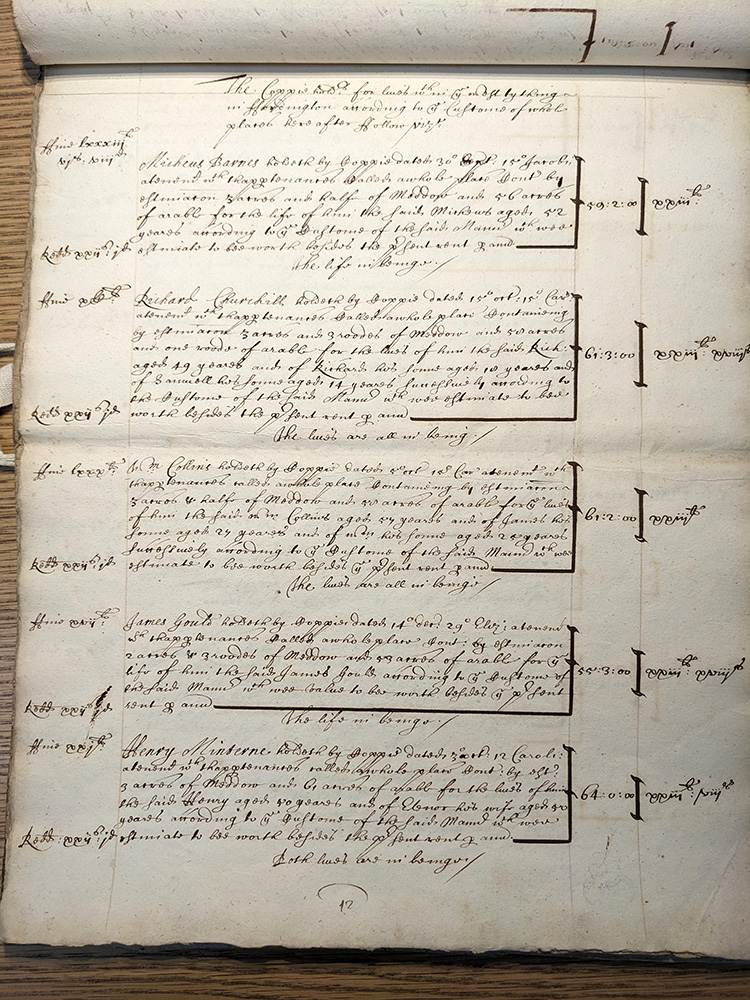 The Coppiehold:rs for lives wthin ye west tything
in Fordington according to ye Custome of whole
places here after follow vizt
ffine lxxxiijli
vjs viijd
Mathewe Barnes holdeth by Coppie dated 30° Sept. 15° Jacobi
a tenemt wth thappertenances Called a whole place Cont by
estimacon 3 acres and halfe of Meddow and 56 acres
of arable for the life of him the said Mathewe aged 52
yeares according to ye Custome of the said Mannr wch wee
Redd xxijs jd
estimate to bee worth besides the psent rent p annu
59:2:00
xxiijli
The life in beinge
ffine
Richard Churchill holdeth by Coppie dated 15° oct: 15° Car
a tenemt wth thappertenances Called a whole place Containeing
by estimacon 3 acres and 3 roodes of Meddow and 58 acres
and one roode of arable for the lives of him the said Rich:
aged 49 yeares and of Richard his sonne aged 18 yeares and
of Samuell his sonne aged 14 yeares successively according to
the Custome of the said Mannr wch wee estimate to bee
Redd xxijs jd
worth besides the psent rent p annu
61:3:00
xxiijli: xviijs
The lives are all in being
ffine lxxxli
Wm Collins holdeth by Coppie dated 5° oct 15° Car a tenemt wth
thappertenances called a whole place Containeing by estimacon
3 acres & halfe of Meddow and 58 acres of arable for ye lives
of him the said Wm Collins aged 57 yeares and of James his
sonne aged 27 yeares and of Wm his sonne aged 25 yeares
successively according to ye Custome of the said Mannr wch wee
Redd xxijs jd
estimate to bee worth besides ye psent rent p annu
61:2:00
xxiiijli
The lives are all in beinge
ffine xvijli
James Gould holdeth by Coppie dated 14° dec: 29° Eliz: a tenemt
wth thappertenances Called a whole place Cont: by estimacon
2 acres & 3 roodes of Meddow and 53 acres of arable for ye
life of him the said James Gould according to ye Custome of
the said Mannr wch wee value to bee worth besides ye psent
Redd xxijs jd
rent p annu
55:3:00
xxijli: xviijs
The life in beinge
ffine xxjli
Henry Minterne holdeth by Coppie dated 3° oct: 12 Caroli:
a tenemt wth thappertenances called a whole place Cont: by est:
3 acres of Meddow and 61 acres of arable for the lives of him
the said Henry aged 50 yeares and of Elenor his wife aged 50
yeares according to ye Custome of the said Mannr wch wee
Redd: xxijs jd
estimate to bee worth besides the psent rent p annu
64:0:00
xxiiijli: viijs
Both lives are in beinge
42